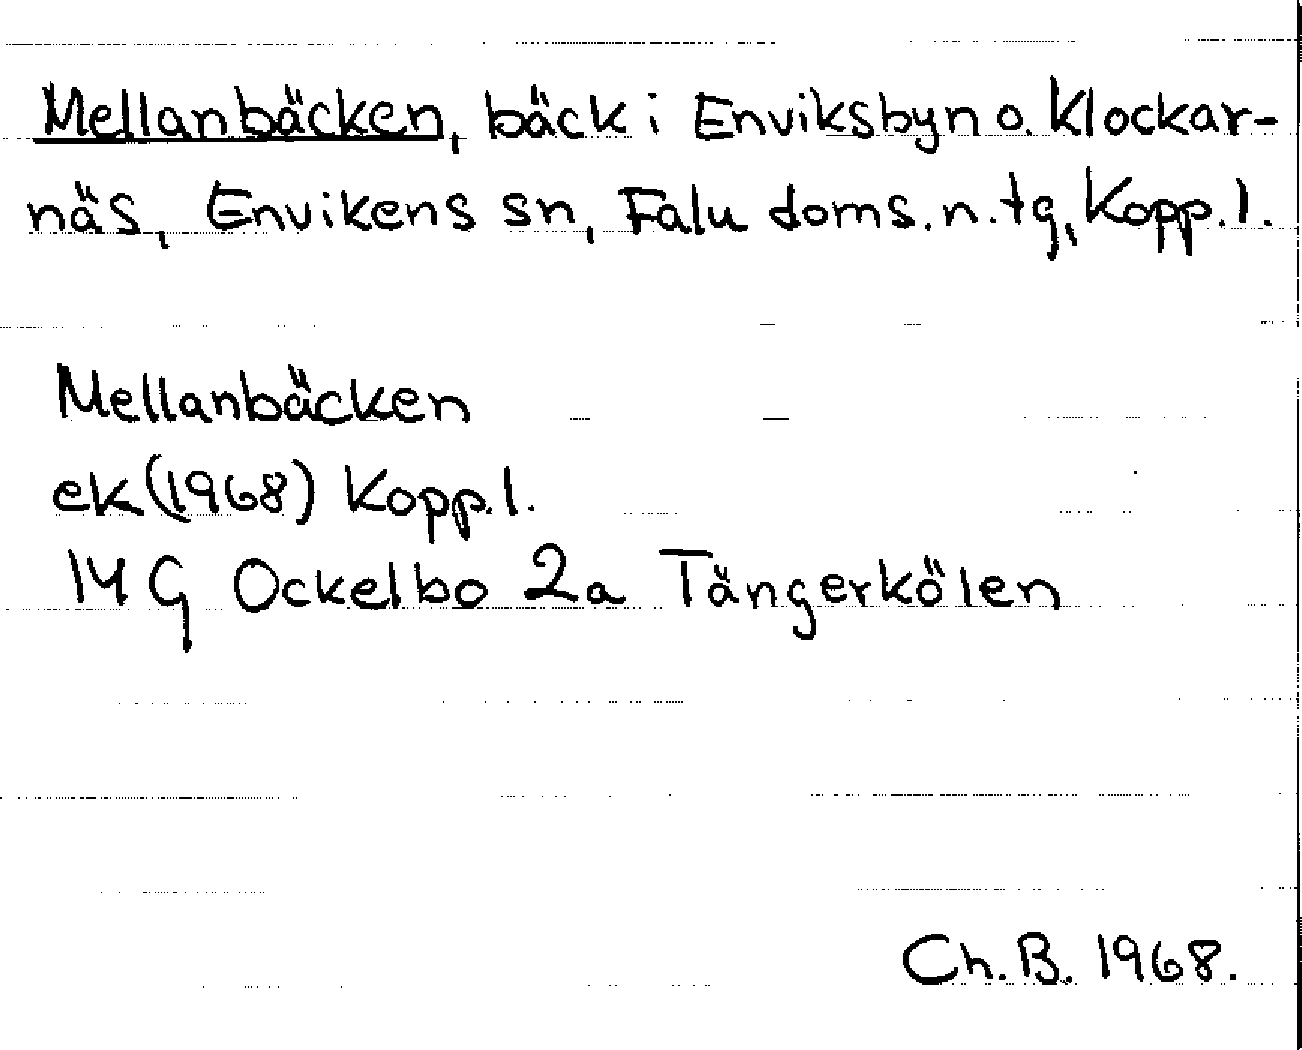 Mellanbäcken, bäck i Enviksbyn o. Klockar-
näs, Envikens sn, Falu doms.n.tg, Kopp.l.
Mellanbäcken
ek(1968) Kopp.l.
14 G Ockelbo 2a Tängerkölen
Ch.B. 1968.